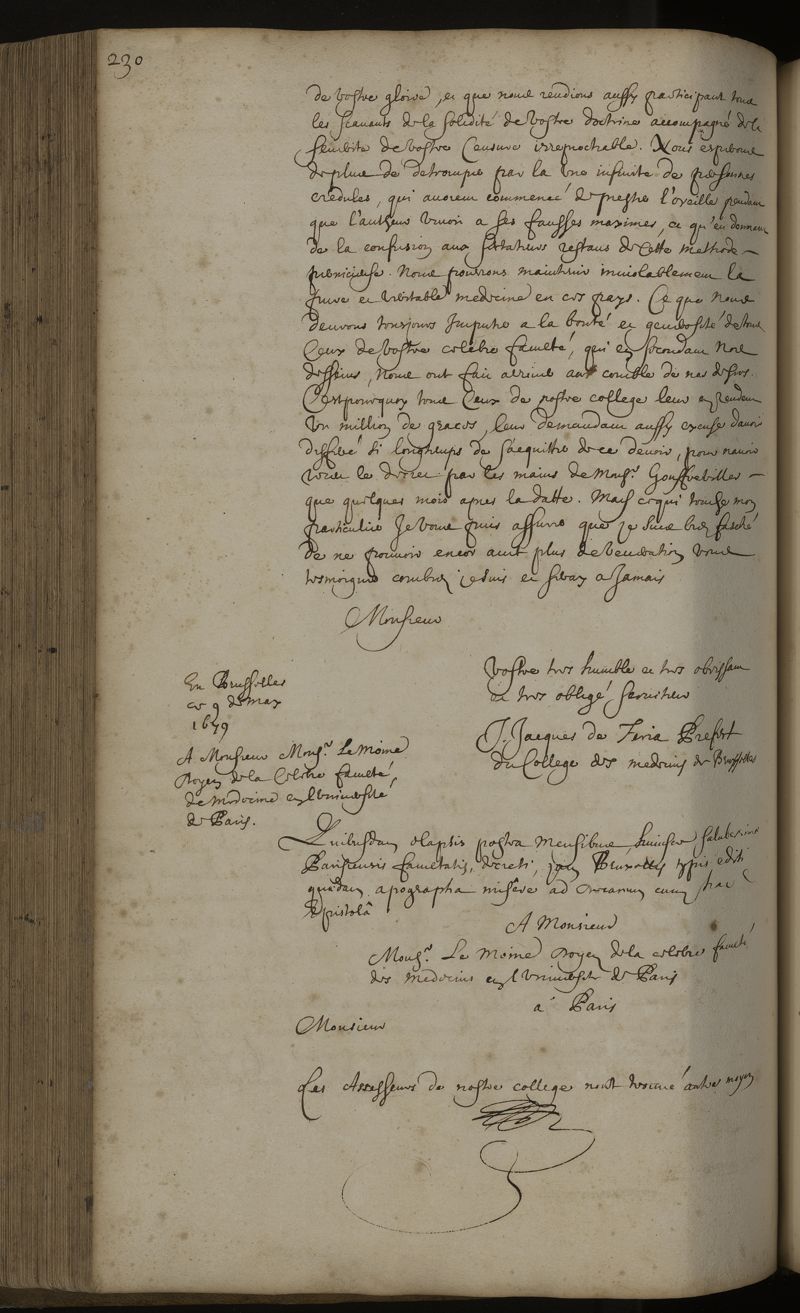 230
de vostre gloire, et que nous rendions aussy participant tous
les scavants de la solidité de vostre doctrine accompagné de la
severite de vostre Censure irreprochable. Nous esperons
de plus de detromper par la une infinité de personnes
credules, qui avoient commencé de prester l'oreille pendant
que l'autheur vivoit a ses fausses maximes, ce qu'en donnant
de la confusion aux sectateurs restans de cette methode
pernicieuse. Nous pourrons maintenir inviolablement la
vraye et veritable medecine en ces pays. Ce que nous
devrons tousjours imputer a la bonté et generosité de tous
Ceux de vostre celebre faculté, qui en secondant nos
desseins, nous ont fait arriver au comble de nos desirs.
C'est pourquoy tous Ceux de nostre college leur en rendent
un million de graces, leur demandant aussy excuse d'avoir
differé si longtemps de s'acquitter de ce devoir, pour n'avoir
receu le decret par les mains de Mons.r Gouffrevilles
que quelques mois apres la datte. Mais ce qui touche mon
particulier Je vous puis assurer que je suis bien fasché
de ne pouvoir encor avec plus de veneration vous
tesmoigner combien je suis et seray a Jamais
Monsieur
Vostre tres humble et tres obeissant
et tres obligé serviteur
J. Jacques de Feria Prefect
du College des medecins de Brusselles
En Brusselles
ce 9 de may
1679
A Monsieur Mons.r Le Moine
Doyen de la Celebre faculté
de Medecine en l'université
de Paris.
Quibusdam elapsis postea mensibus huiusce saluberrimæ
Parisiensis facultatis, decreti, jam Bruxellis typis editi
quædam apographa misere ad Decanum cum hac
Epistolâ
A Monsieur
Mons.r Le Moine Doyen de la celebre faculté
des Medecins en l'université de Paris
à Paris
Monsieur
Les Assesseurs de nostre college n'ont trouvé autre moyen